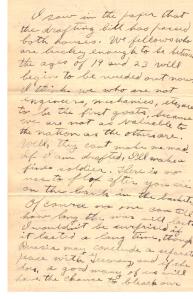 I saw in the paper that
the drafting bill has passed
both houses. We fellows who
are lucky enough to be between
the ages of 19 and 23 will
begin to be needed
I think we who are not
engineers, mechanics, etc, are
to be the first goats, because
we are not as valuable to
the nation as the others are.
Well, they cant make me mad
if I am drafted, I'll make a
fine soldier. There is no
after you are
on the
Of course no one can tell
how long the war will last.
I wouldn't be surprised if
it lasted a long time, though
Russia may conclude a separate
peace with Germany and if she
does, a good many of us will
have the chance to bleach our